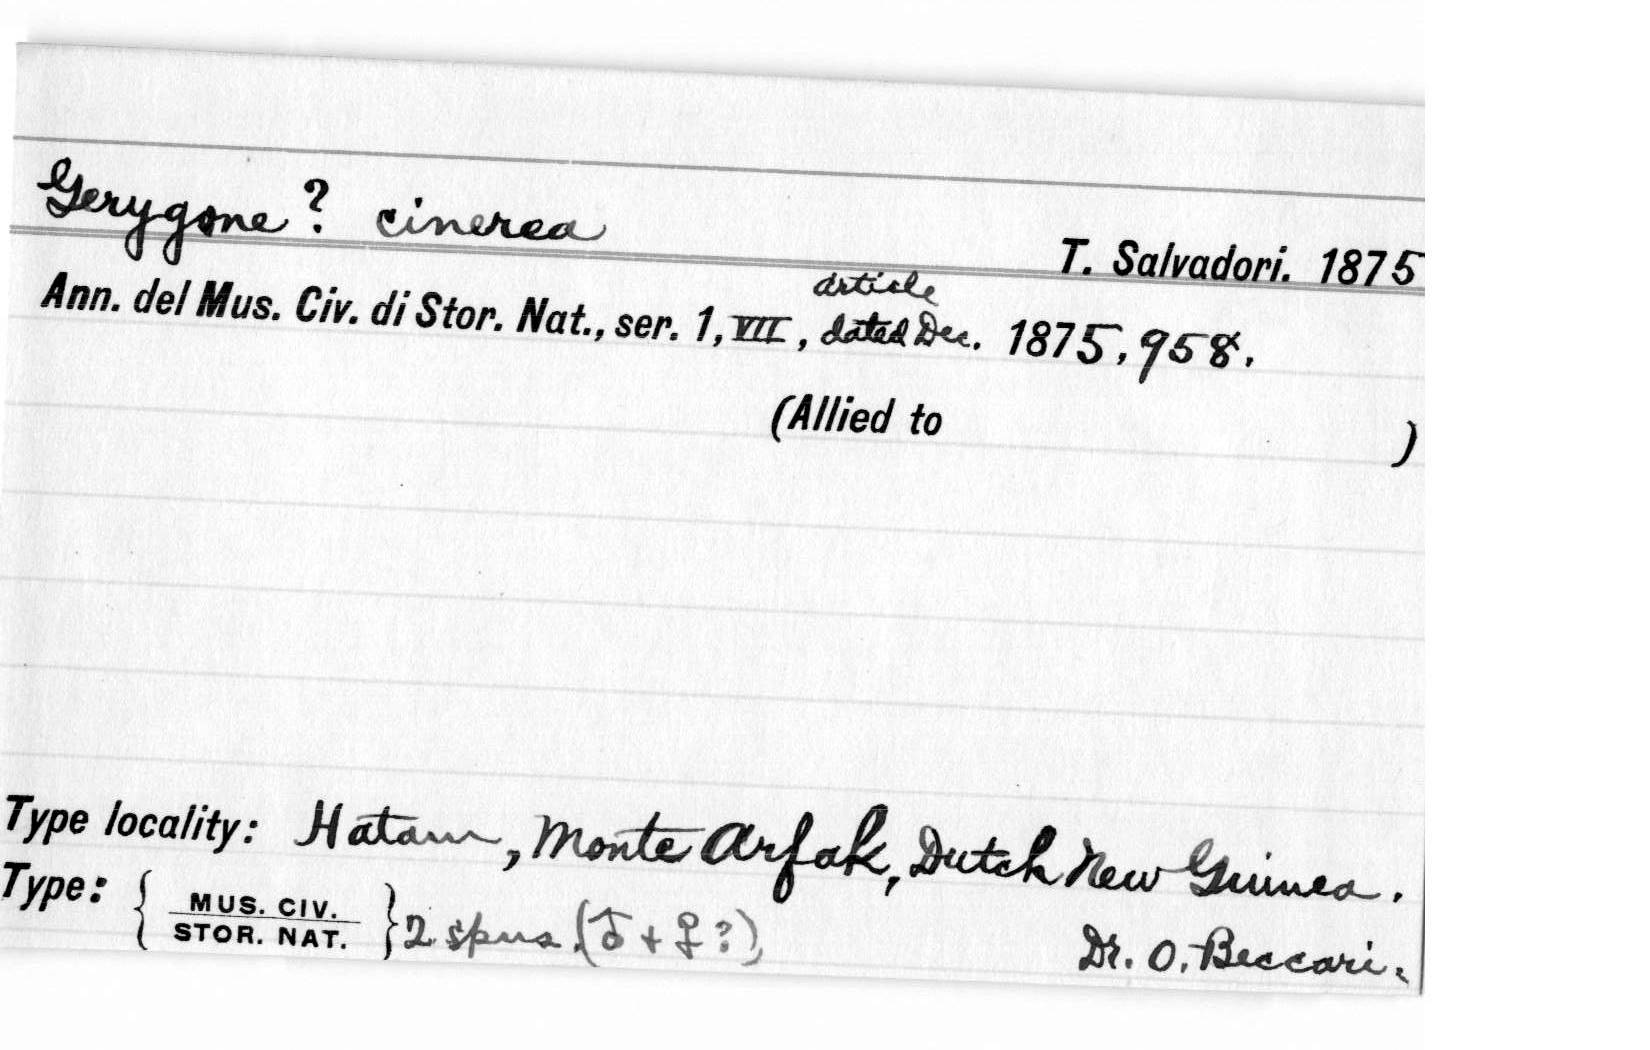 Gerygone ? cinerea
T. Salvadori. 1875
article
Ann. del Mus. Civ. di Stor. Nat., ser. 1, VII, dated Dec. 1875, 958.
(Allied to )
Type locality: Hatam, Monte Arfak, Dutch New Guinea.
Type: { MUS. CIV. STOR. NAT. } 2 spns. (♂ + ♀?)
Dr. O. Beccari.